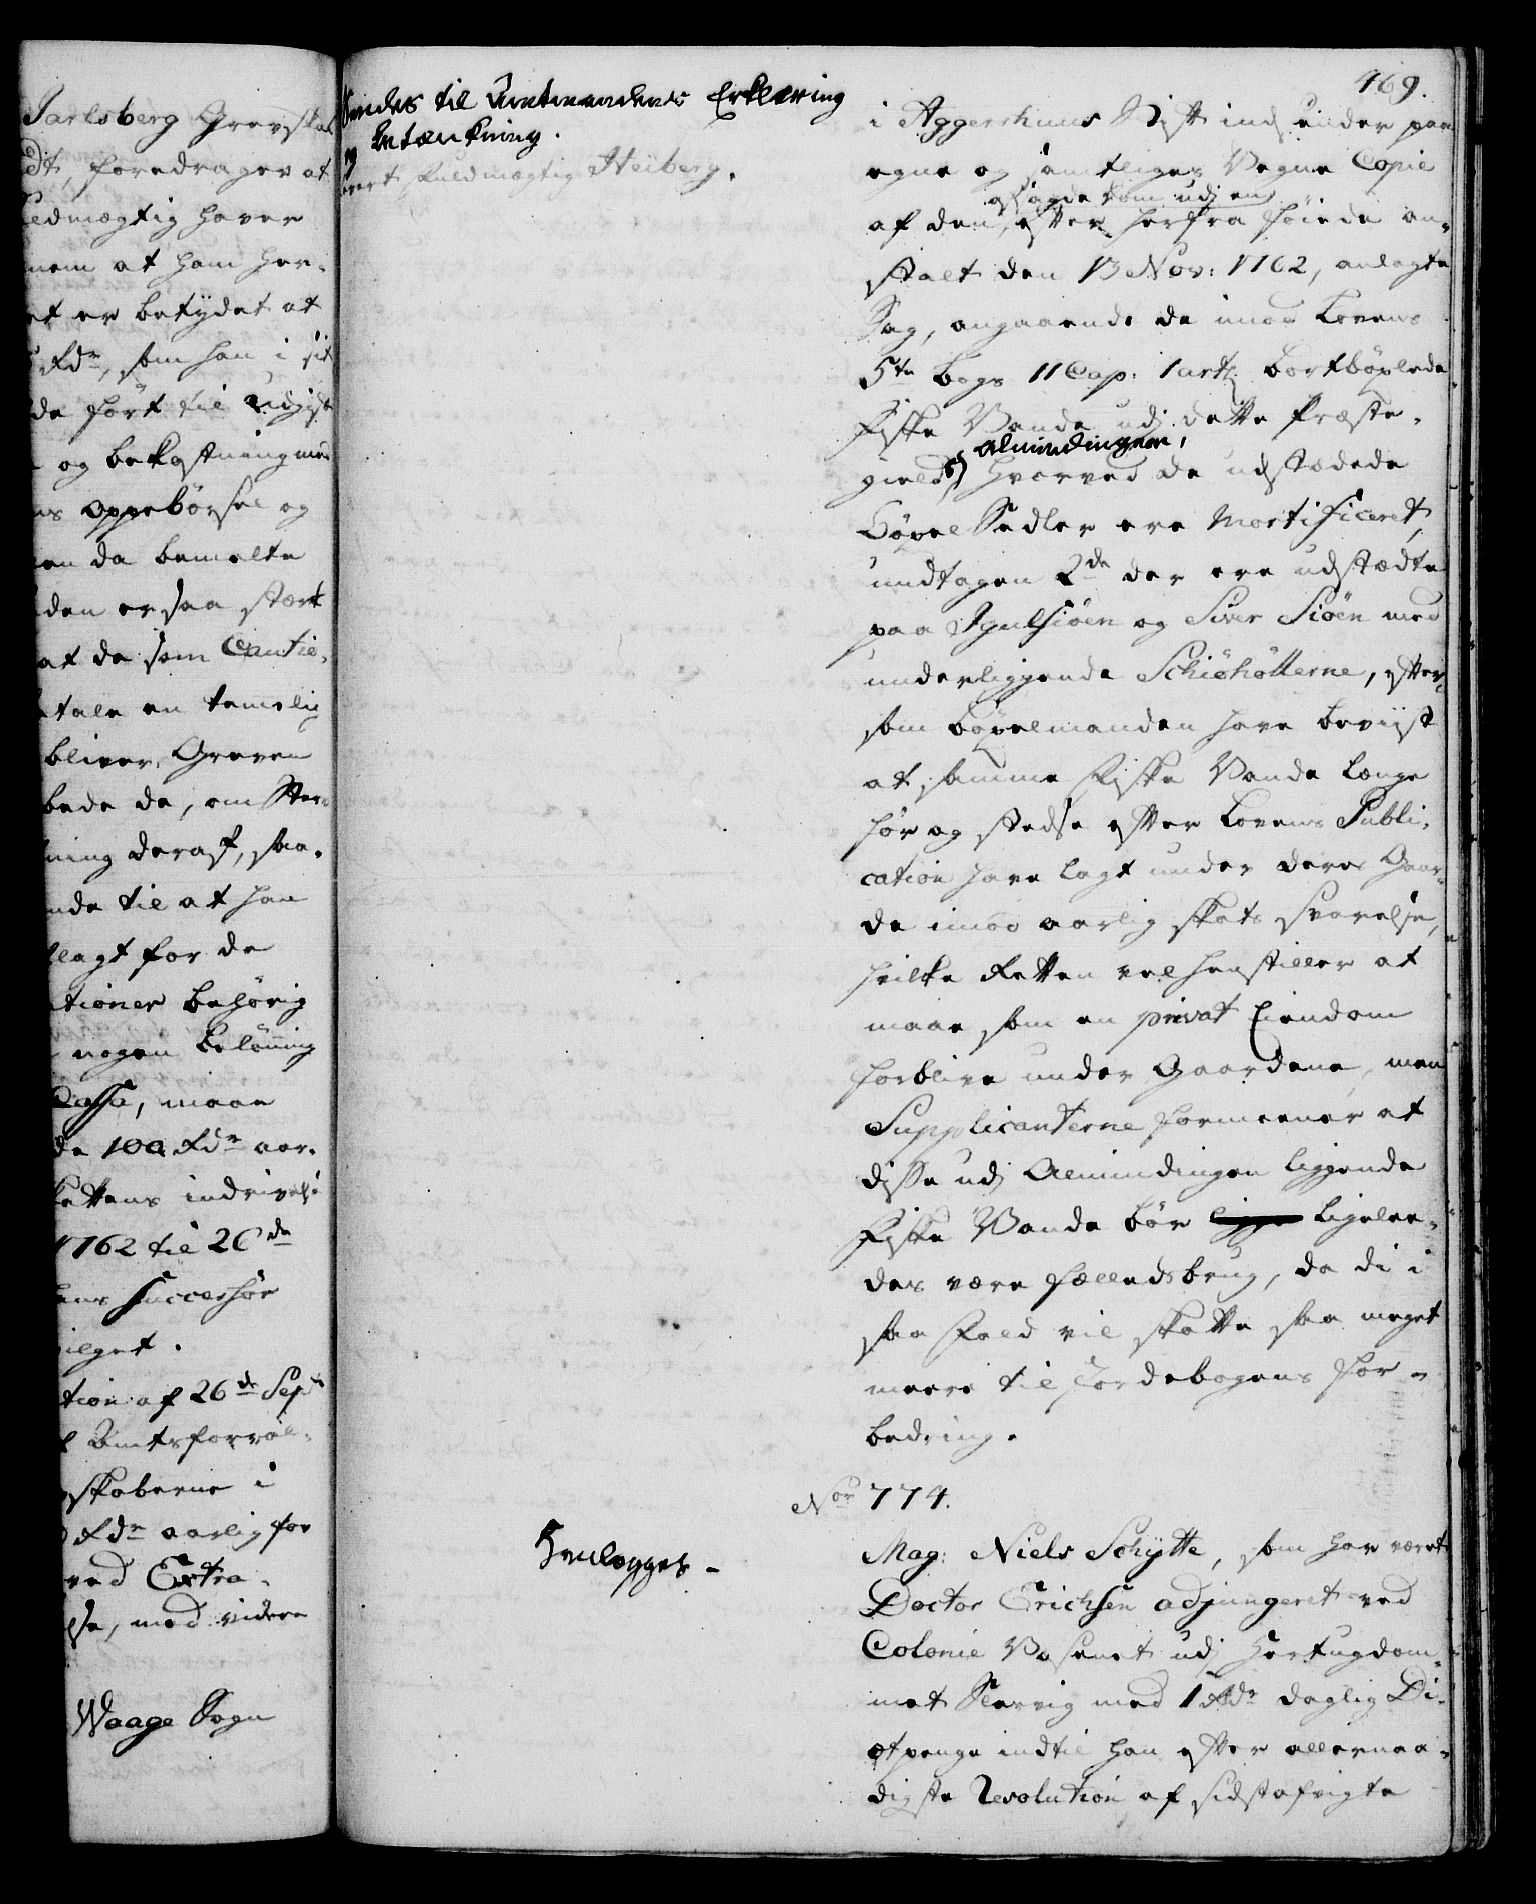 Jarlsberg Grevska
dt, foredrager at
uldmægtig haver
nem at ham her-
et er betydet at
Rdr, som han i sit
de ført til Udgift
og bekostning med
ns oppebørsel og
en da bemelte
den er saa stærk
at de som Cautio-
tale en temelig
bliver, Greven
bede de, om
ning deraf, saa-
nde til at han
lagt for de
tioner behørig
nogen belønning
Cassa, maae
de 100 Rdr aar-
kattens indrivelse
1762 til 20de
ens Successor
ilget.
tion af 26de Sept
Amtsforval-
skaberne i
Rdr aarlig for
ved Extra-
lse, med videre
Waage Sogn
Sendes til Amtmandens Erklæring
og betænkning.
Fuldmægtig Heiberg.
469.
i Aggershuus Stift indsender paa
egne og samtliges Vegne Copie
afsagde Dom udj en
af den, efter herfra föiede an-
stalt den 13 Nov: 1762, anlagte
Sag, angaaende de imod Lovens
5te Bogs 11 Cap: 1 art: bortböxlede
Fiske Vande udj dette Præste-
almindinger,
gield, hvorved de udstædede
Böxel Sedler ere Mortificeret,
undtagen 2de der ere udstædte
paa Igulsiöen og Siver Siöen med
underliggende Schiöhölterne, efter-
som böxelmanden have beviist
at samme Fiske Vande længe
för og stedse efter Lovens Publi-
cation have lagt under deres Gaar-
de imod aarlig skats svarelse,
hvilke Retten vel henstiller at
maae som en privat Eiendom
forblive under Gaardene, men
Supplicanterne formeener at
disse udj Almindingen liggende
Fiske Vande bör ligelee-
des være fælledsbrug, da di i
saa Fald vil skatte saa meget
meere til Jordebogens for-
bedring.
Nor 774.
Henlegges -
Mag: Niels Schytte, som har været
Doctor Erichsen adjungeret ved
Colonie Væsenet udj Hertugdom-
met Slesvig med 1 Rdr daglig Di-
ætpenge indtil han efter allernaa-
digste Resolution af sidstafvigte